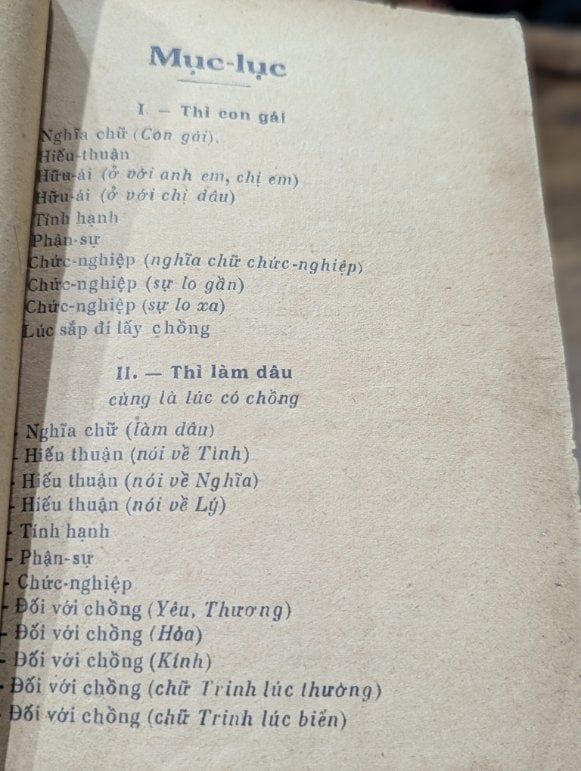 Mục-lục
I — Thì con gái
Nghĩa chữ (Con gái).
Hiếu-thuận
Hữu-ái (ở với anh em, chị em)
Hữu-ái (ở với chị dâu)
Tính hạnh
Phận-sự
Chức-nghiệp (nghĩa chữ chức-nghiệp)
Chức-nghiệp (sự lo gần)
Chức-nghiệp (sự lo xa)
Lúc sắp đi lấy chồng
II. — Thì làm dâu
cùng là lúc có chồng
- Nghĩa chữ (làm dâu)
- Hiếu thuận (nói về Tình)
- Hiếu thuận (nói về Nghĩa)
- Hiếu thuận (nói về Lý)
- Tính hạnh
- Phận-sự
- Chức-nghiệp
- Đối với chồng (Yêu, Thương)
- Đối với chồng (Hòa)
- Đối với chồng (Kính)
- Đối với chồng (chữ Trinh lúc thường)
- Đối với chồng (chữ Trinh lúc biến)